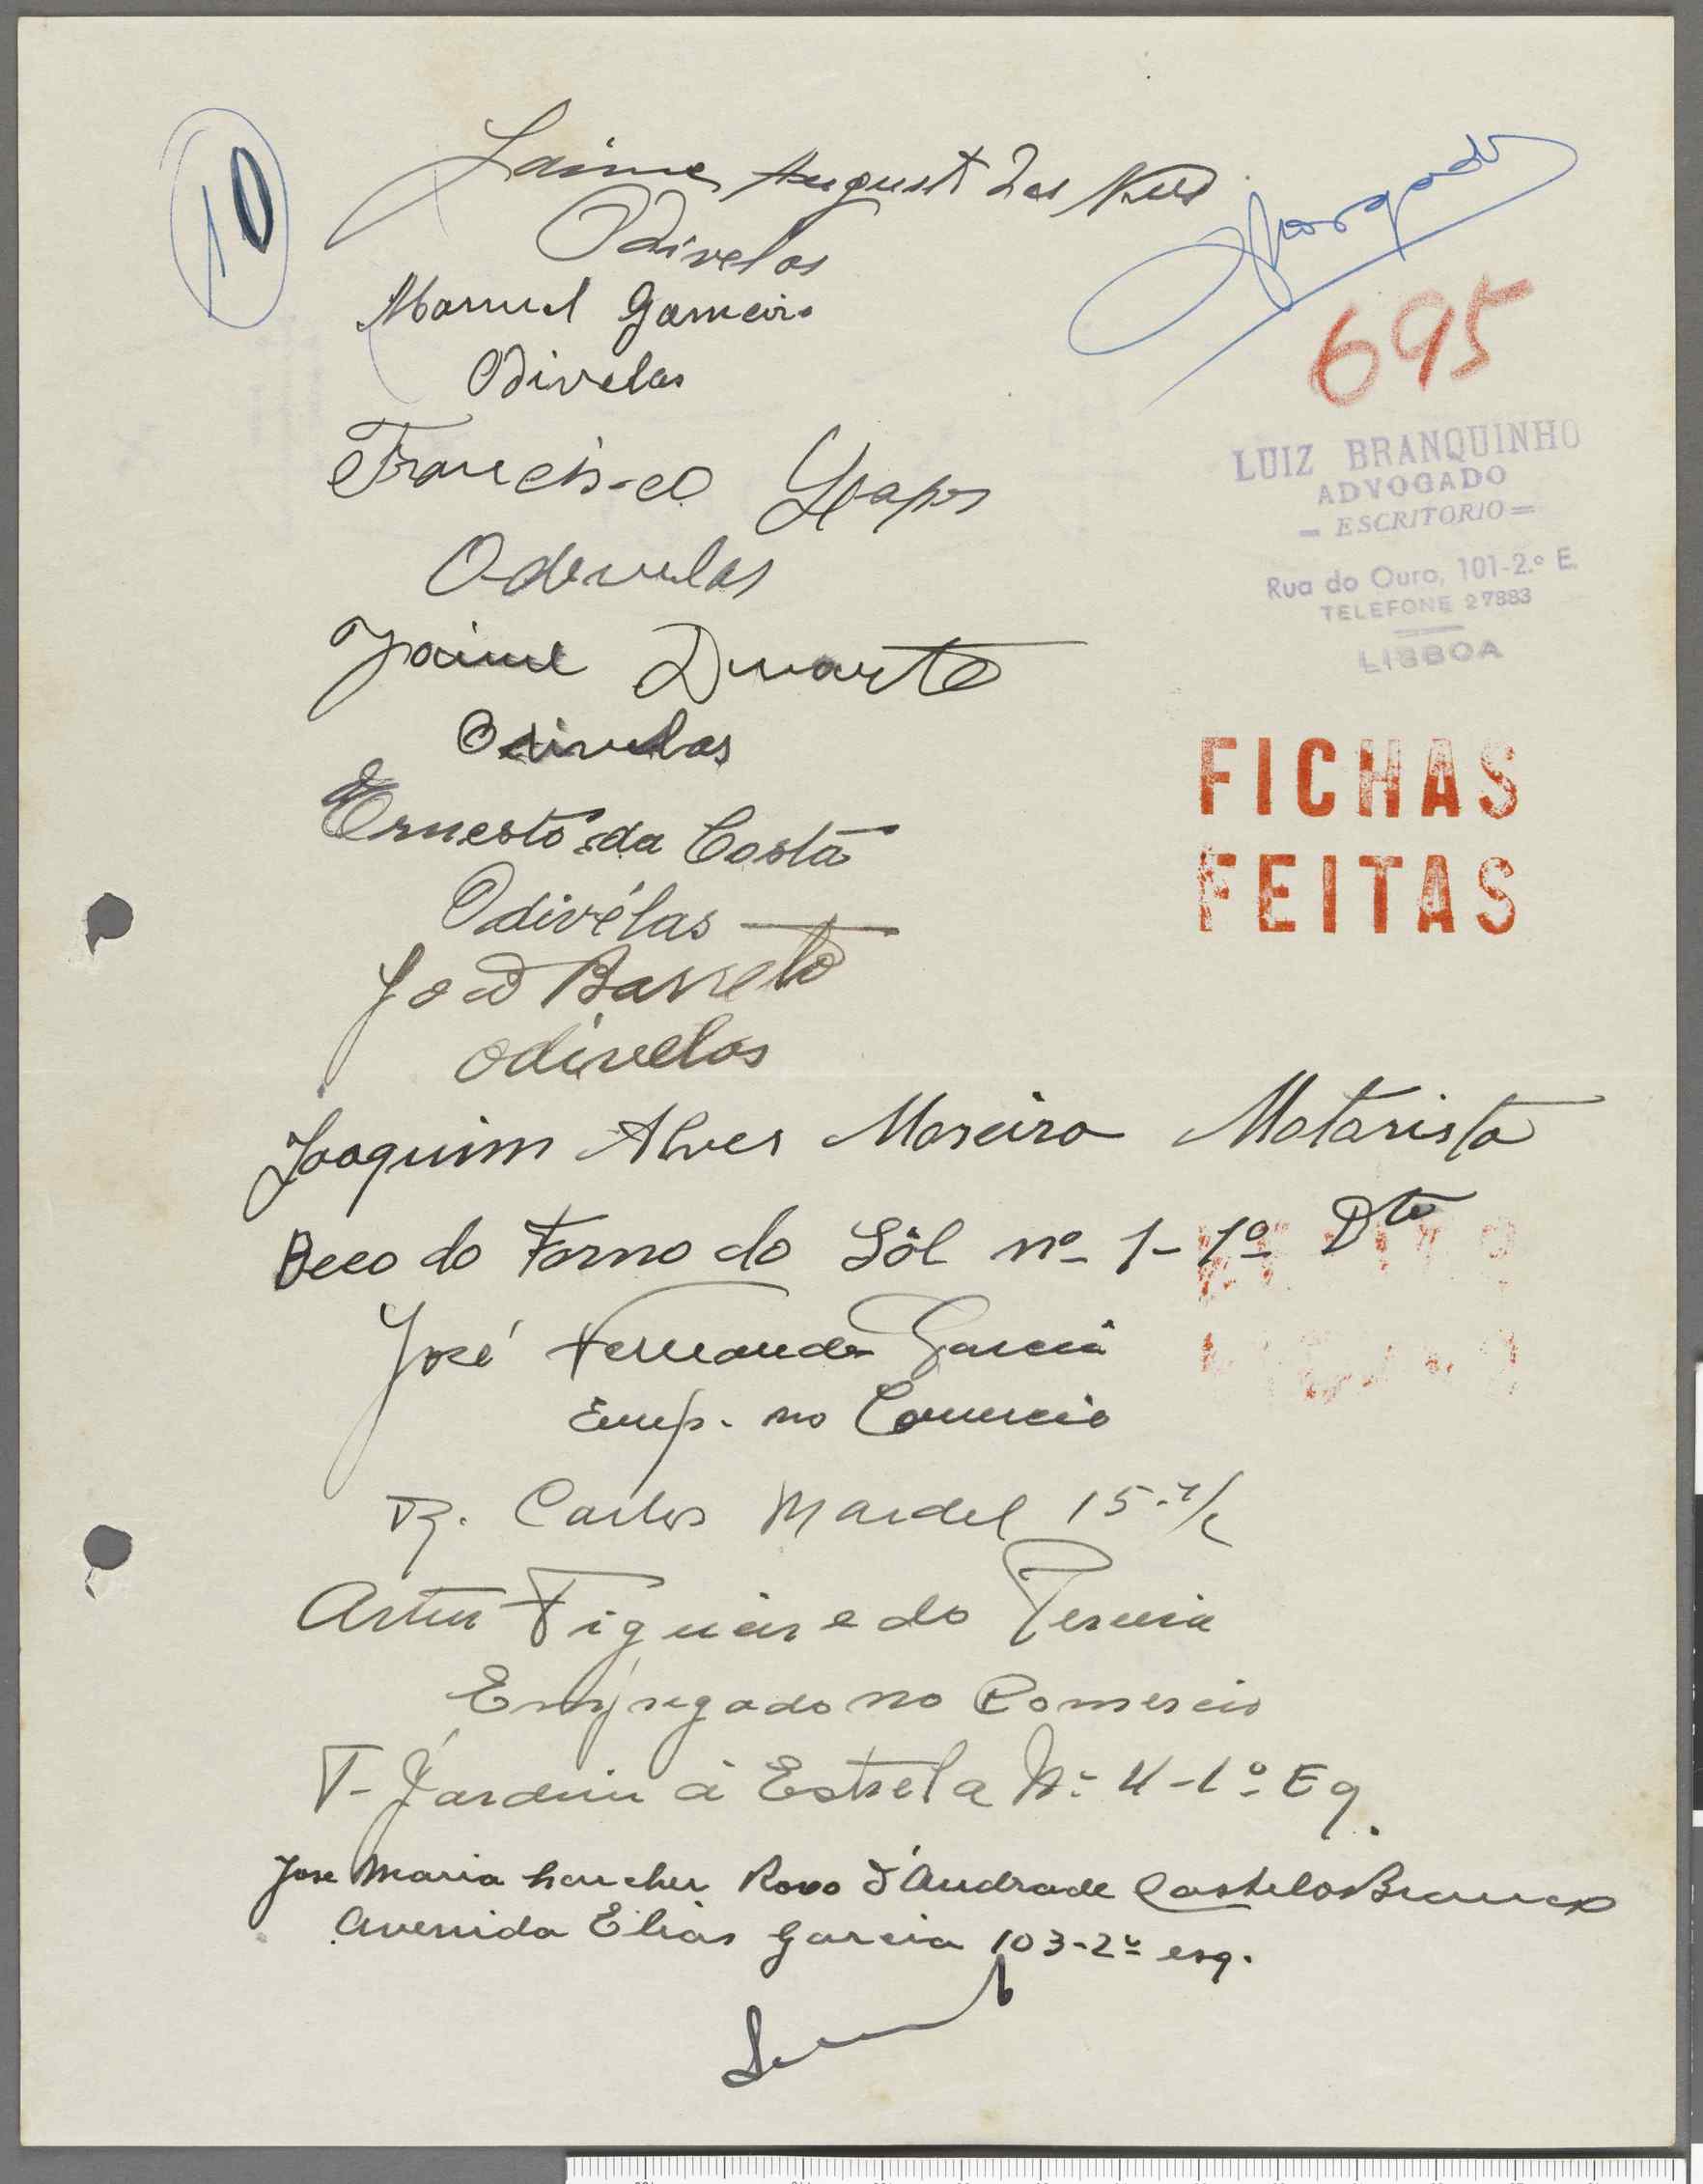 10
Jaime August das
Odivelas
695
Manuel Gameiro
Odivelas
LUIZ BRANQUINHO
ADVOGADO
— ESCRITORIO —
Rua do Ouro, 101-2.º E.
TELEFONE 27883
LISBOA
Francisco
Odevelas
Jaime Duarte
Odivelas
FICHAS
FEITAS
Ernesto da Costa
Odivélas
João Barreto
odivelas
Joaquim Alves Moreira Motorista
Beco do Forno do Sôl nº 1-1º Dto
José Fernandes Garcia
Emp. no Comercio
R. Carlos Mardel 15-r/c
Artur Figueiredo Pereira
Empregado no Comercio
T- Jardim á Estrela Nº 4-1º Eq.
Jose Maria Rovo d'Andrade Castelo Branco
Avenida Elias Garcia 103-2º esq.